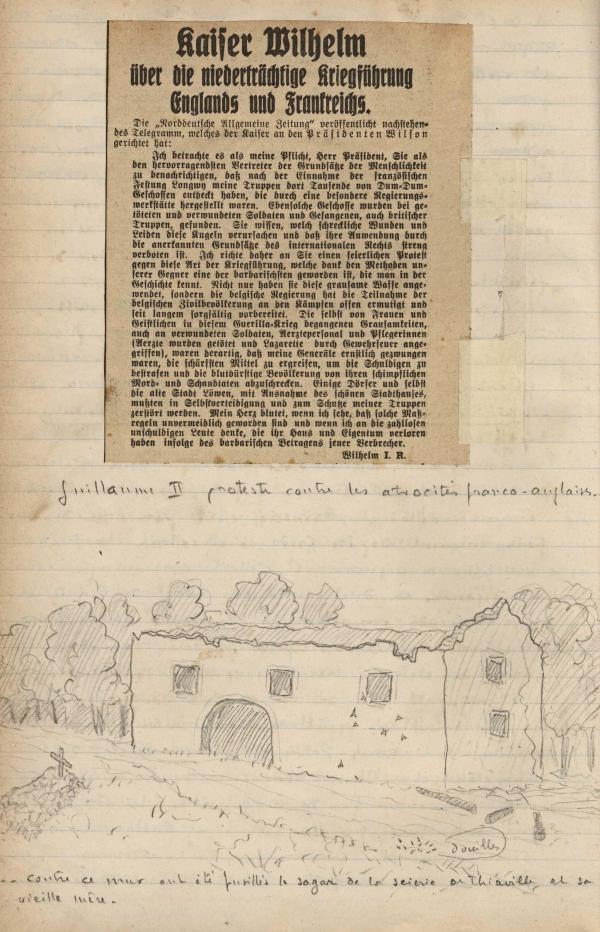 Kaiser Wilhelm
über die niederträchtige Kriegführung
Englands und Frankreichs.
Die „Norddeutsche Allgemeine Zeitung“ veröffentlicht nachstehen-
des Telegramm, welches der Kaiser an den Präsidenten Wilson
gerichtet hat:
Ich betrachte es als meine Pflicht, Herr Präsident, Sie als
den hervorragendsten Vertreter der Grundsätze der Menschlichkeit
zu benachrichtigen, daß nach der Einnahme der französischen
Festung Longwy meine Truppen dort Tausende von Dum-Dum-
Geschossen entdeckt haben, die durch eine besondere Regierungs-
werkstätte hergestellt waren. Ebensolche Geschosse wurden bei ge-
töteten und verwundeten Soldaten und Gefangenen, auch britischer
Truppen, gefunden. Sie wissen, welch schreckliche Wunden und
Leiden diese Kugeln verursachen und daß ihre Anwendung durch
die anerkannten Grundsätze des internationalen Rechts streng
verboten ist. Ich richte daher an Sie einen feierlichen Protest
gegen diese Art der Kriegführung, welche dank den Methoden un-
serer Gegner eine der barbarischsten geworden ist, die man in der
Geschichte kennt. Nicht nur haben sie diese grausame Waffe ange-
wendet, sondern die belgische Regierung hat die Teilnahme der
belgischen Zivilbevölkerung an den Kämpfen offen ermutigt und
seit langem sorgfältig vorbereitet. Die selbst von Frauen und
Geistlichen in diesem Guerilla-Krieg begangenen Grausamkeiten,
auch an verwundeten Soldaten, Aerztepersonal und Pflegerinnen
(Aerzte wurden getötet und Lazarette durch Gewehrfeuer ange-
griffen), waren derartig, daß meine Generäle ernstlich gezwungen
waren, die schärfsten Mittel zu ergreifen, um die Schuldigen zu
bestrafen und die blutdürstige Bevölkerung von ihren schimpflichen
Mord- und Schandtaten abzuschrecken. Einige Dörfer und selbst
die alte Stadt Löwen, mit Ausnahme des schönen Stadthauses,
mußten in Selbstverteidigung und zum Schutze meiner Truppen
zerstört werden. Mein Herz blutet, wenn ich sehe, daß solche Maß-
regeln unvermeidlich geworden sind und wenn ich an die zahllosen
unschuldigen Leute denke, die ihr Haus und Eigentum verloren
haben infolge des barbarischen Betragens jener Verbrecher.
Wilhelm I. R.
Guillaume II proteste contre les atrocités franco-anglaises.
douilles
-- contre ce mur ont été fusillés le sagar de la scierie de Thiaville et sa
vieille mère.